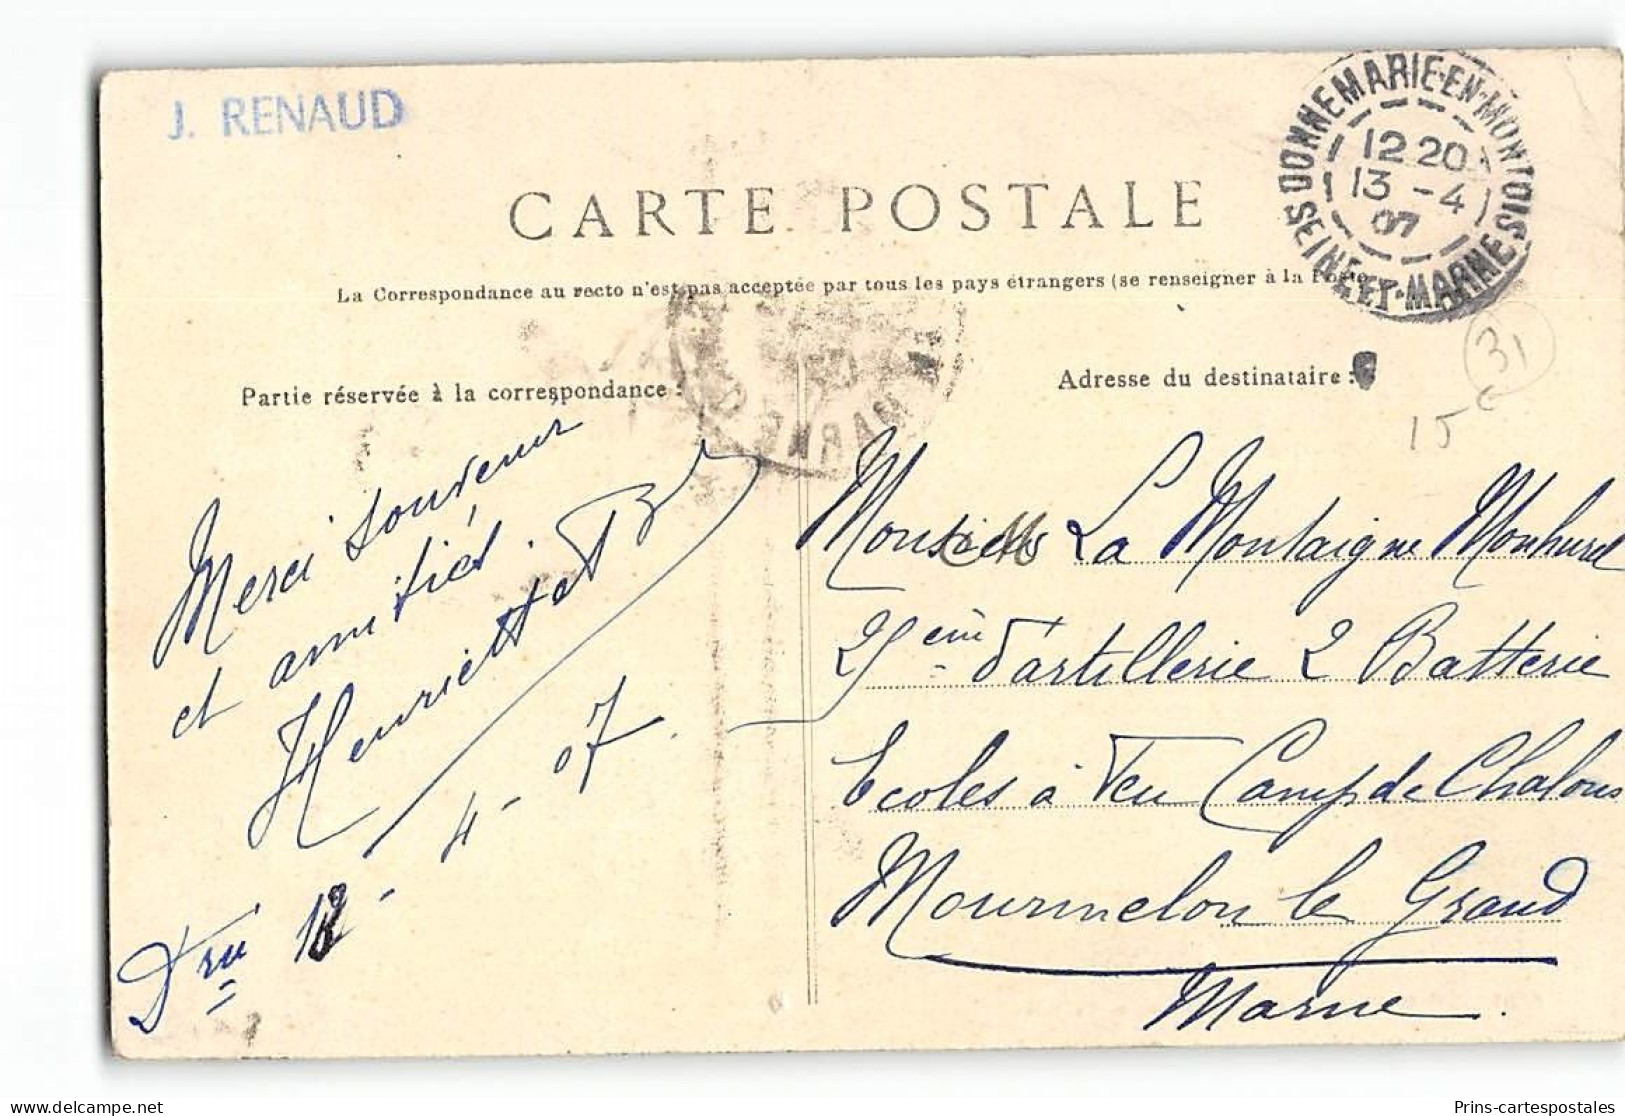 J. RENAUD
DONNEMARIE-EN-MONTOIS
12 20
13 -4
07
SEINE-ET-MARNE
CARTE POSTALE
La Correspondance au recto n'est pas acceptée par tous les pays étrangers (se renseigner à la Poste
31
15
Partie réservée à la correspondance :
Adresse du destinataire :
MARNE
Merci souvenir
et amitiés.
Henriette B
Dru 12 - 4 - 07.
La Montaigne
25 eme d'artillerie 2 Batterie
Ecoles à Feu Camp de Chalons
Mourmelon le Grand
Marne.
Prins-cartespostales